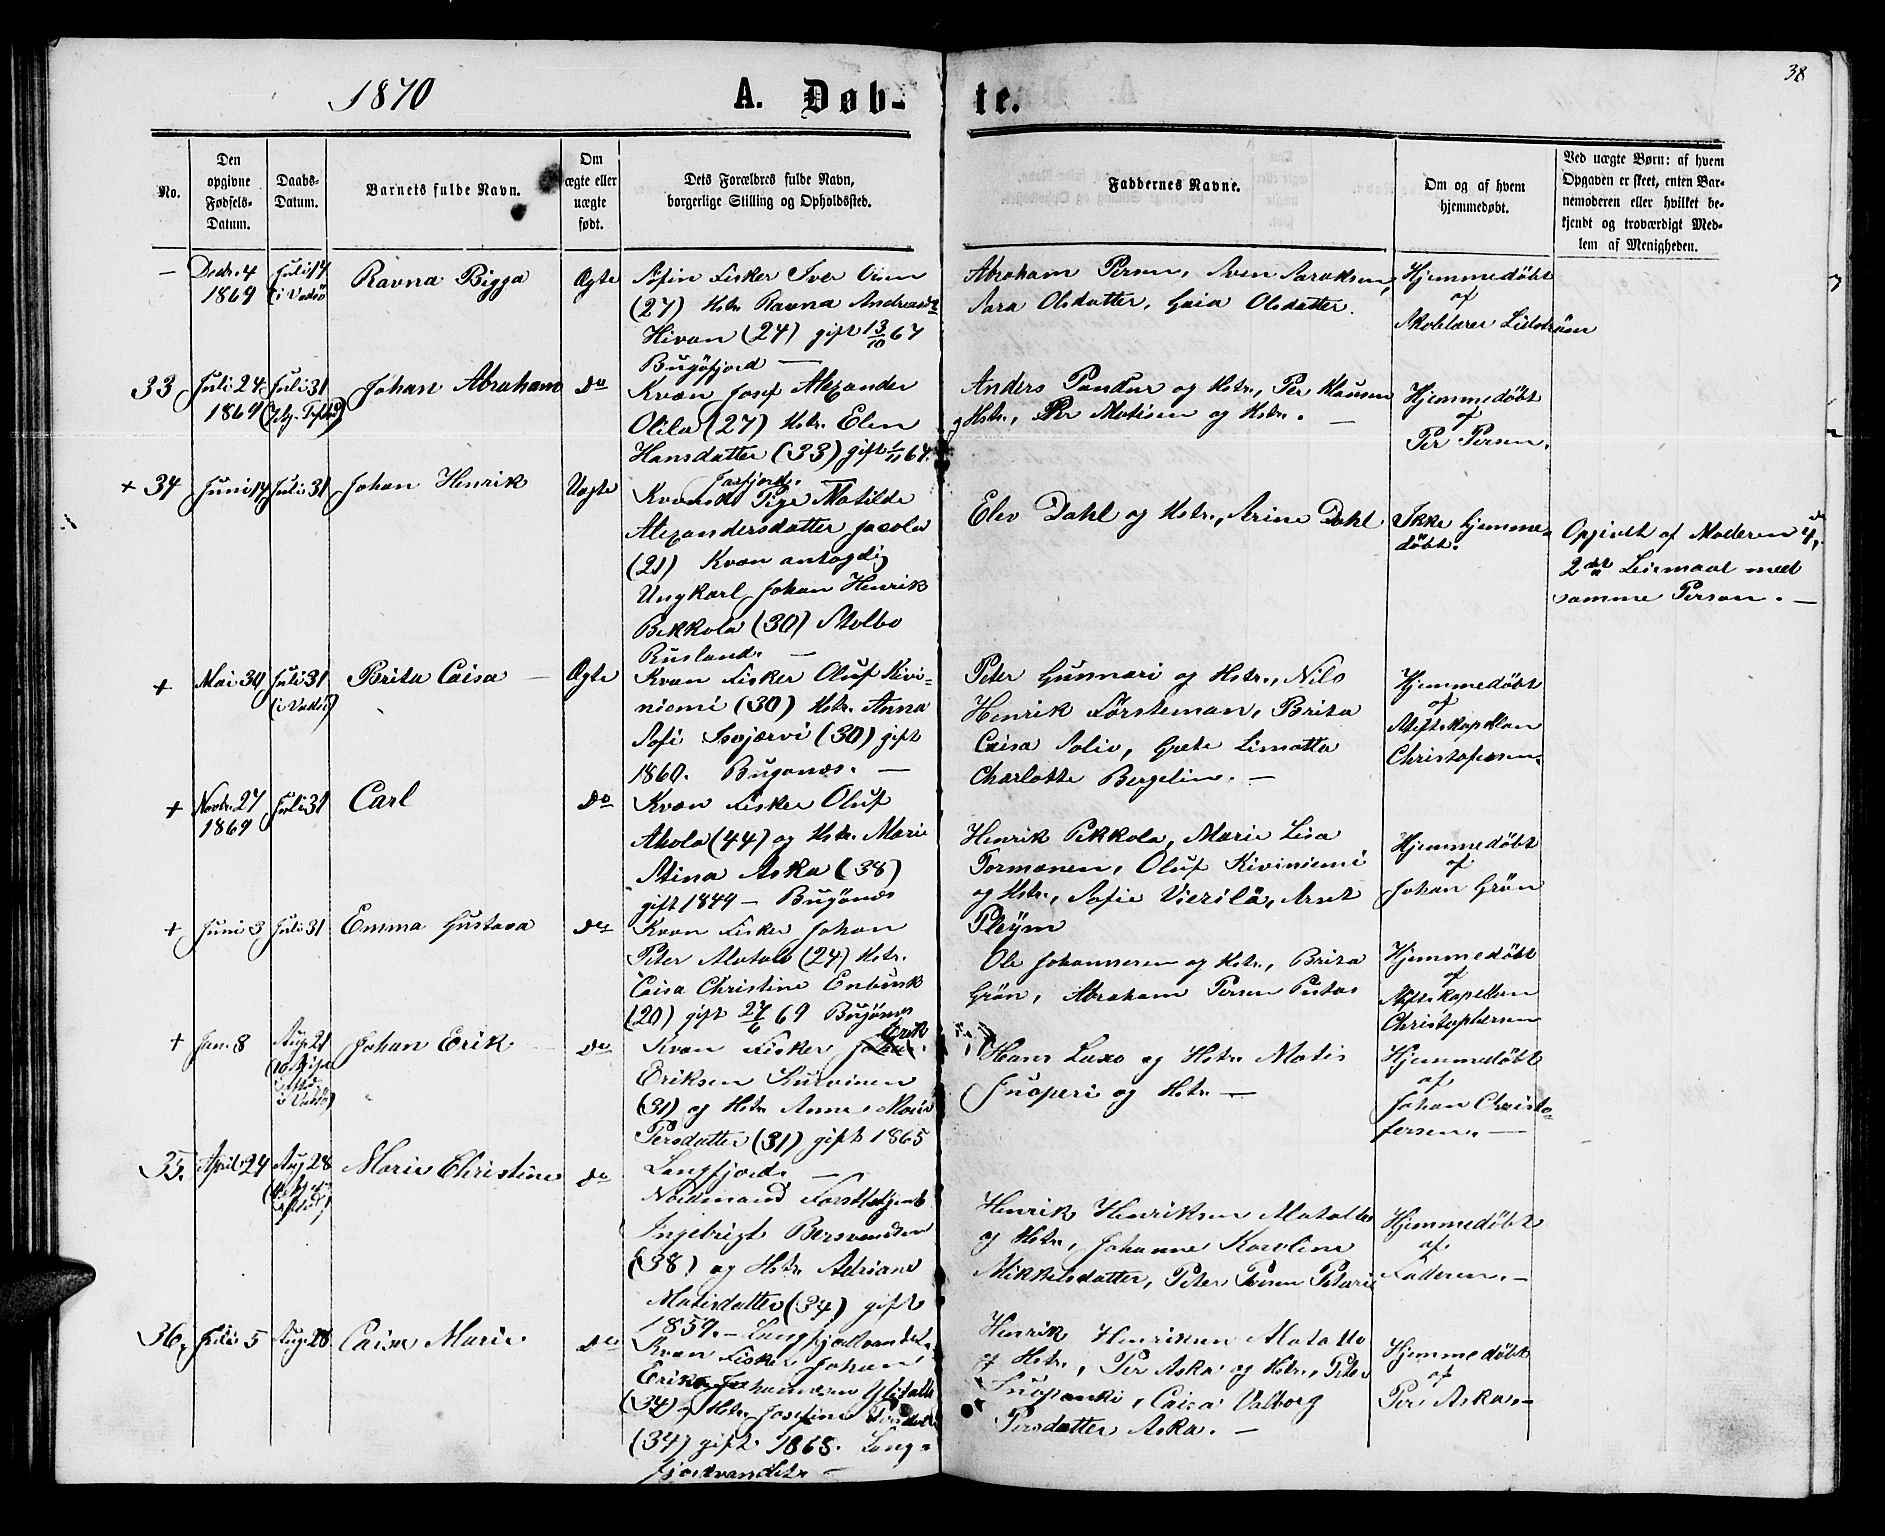 38
1870 A. Døb-te.
No.
Den opgivne Fødsels-Datum.
Daabs-Datum.
Barnets fulde Navn.
Om ægte eller uægte født.
Dets Forældres fulde Navn, borgerlige Stilling og Opholdssted.
Faddernes Navne.
Om og af hvem hjemmedøbt.
Ved uægte Børn: af hvem Opgaven er skeet, enten Barnemoderen eller hvilket bekjendt og troværdigt Medlem af Menigheden.
— Decbr. 4 1869
Juli 17 (i Vadsø
Ravna Bigga
Ægte
Fisker Iver
(27) Hstr. Ravna Andreasd
(24) gift 13/10 67
Bugøfjord —
Abraham Persen, Sven Saraksen,
Sara Olsdatter, Gaia Olsdatter.
Hjemmedøbt
af
33 Juli 24 1869
Juli 31
Johan Abraham
Do
Kvæn Josef Alexander
Olila (27) Hstr. Elen
Hansdatter (33) gift 1/11 67.
Jarfjord.
Anders Pandur og Hstr., Per Klausen
og Hstr., Per Matisen og Hstr. —
Hjemmedøbt
af
Per Persen.
+ 34 Juni 14
Juli 31
Johan Henrik
Uægte
Kvensk Pige Matilde
Alexandersdatter Jacola
(21) Kvæn
Ungkarl Johan Henrik
Bekkola (30) Stolbo
Rusland. —
Elev Dahl og Hstr., Arine Dahl
Ikke hjemme-
døbt.
Opgivet af Moderen
2det Leiemaal med
samme Person. —
+ Mai 30
Juli 31 (i Vadsø)
Brita Caisa —
Ægte
Kvæn Fisker Oluf Kivi-
niemi (30) Hstr. Anna
Sofi (30) gift
1860. Bugønæs. —
Peter Gunnari og Hstr., Nils
Henrik Førsteman, Brita
Caisa Solio, Grete Limatta
Charlotte Bergelin. —
Hjemmedøbt
af
Stiftskapellan
Christofersen.
+ Novbr. 27 1869
Juli 31
Carl
Do
Kvæn Fisker Oluf
Akola (44) og Hstr. Marie
Stina Aska (38)
gift 1849 — Bugønæs
Henrik Pekkola, Marie Lisa
Tormanen, Oluf Kiviniemi
og Hstr., Sofie Vierilä, Arnt
Pleym
Hjemmedøbt
af
Johan Grøn
+ Juni 3
Juli 31
Emma Gustava
Do
Kvæn Fisker Johan
Peter Alatalo (24) Hstr.
Caisa Christine Enbusk
(20) gift 27/6 69 Bugønæs
Ole Johannesen og Hstr., Brita
Grøn, Abraham Persen
Hjemmedøbt
af
Stiftskapellan
Christophersen
+ Jan. 8
Aug. 21
Johan Erik
Do
Kvæn Fisker Johan Erik
Eriksen Kurvinen
(31) og Hstr. Anne Marie
Persdatter (31) gift 1865
Langfjord. —
Hans Luxo og Hstr. Matis
Juoperi og Hstr. —
Hjemmedøbt
af
Johan Christo-
fersen. —
35. April 24
Aug 28
Marie Christine
Do
Nordmand
Ingebrigt Bersvendsen
(38) og Hstr. Adriane
Matisdatter (34) gift
1859. — Langfjordvandet.
Henrik Henriksen Matalla
og Hstr., Johanne Karoline
Mikkelsdatter, Peter
Hjemmedøbt
af
Faderen. —
36. Juli 5
Aug. 28
Caisa Marie
Do
Kvæn Fisker Johan
Erik Johannesen
(34) Hstr. Josefine
(34) gift 1868. Lang-
fjordvandet. —
Henrik Henriksen Matalla
og Hstr., Per Aska og Hstr., Peter
Caisa Valborg
Persdatter Aska. —
Hjemmedøbt
af
Per Aska. —